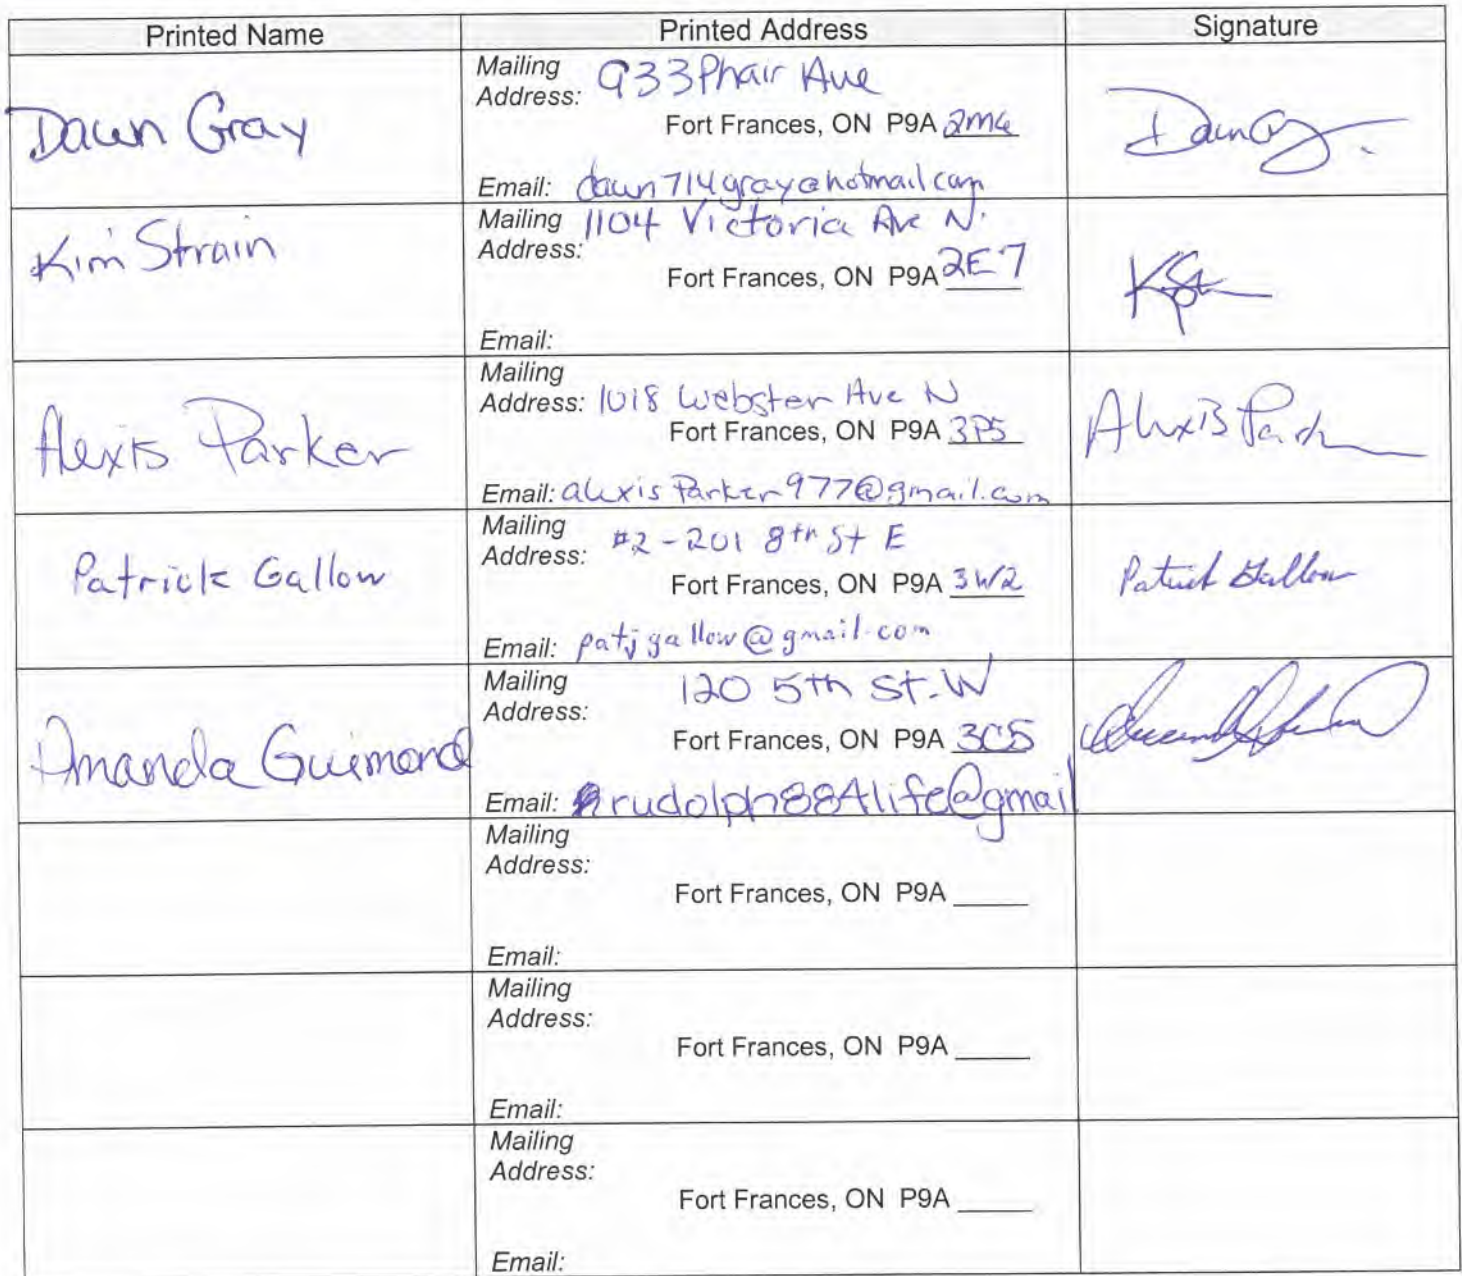 Printed Name Printed Address Signature
Dawn Gray
Mailing Address: 933 Phair Ave
Fort Frances, ON P9A 2M6
Email: dawn714gray@hotmail.com
Kim Strain
Mailing Address: 1104 Victoria Ave N.
Fort Frances, ON P9A 2E7
Email:
Alexis Parker
Mailing Address: 1018 Webster Ave N
Fort Frances, ON P9A 3P5
Email: alexisParker977@gmail.com
Alexis Park
Patrick Gallow
Mailing Address: #2-201 8th St E
Fort Frances, ON P9A 3W2
Email: patjgallow@gmail.com
Patrick Gallow
Amanda Guimond
Mailing Address: 120 5th St. W
Fort Frances, ON P9A 3C5
Email: rudolph884life@gmail
Mailing Address:
Fort Frances, ON P9A ____
Email:
Mailing Address:
Fort Frances, ON P9A ____
Email:
Mailing Address:
Fort Frances, ON P9A ____
Email: